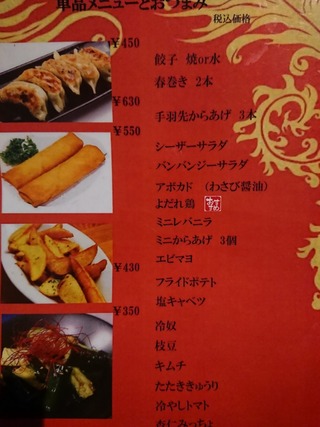 単品メニューとおつまみ
税込価格
￥450
餃子 焼or水
春巻き 2本
￥630
手羽先からあげ 3本
￥550
シーザーサラダ
バンバンジーサラダ
アボカド （わさび醤油）
よだれ鶏
ミニレバニラ
ミニからあげ 3個
エビマヨ
￥430
フライドポテト
塩キャベツ
￥350
冷奴
枝豆
キムチ
たたききゅうり
冷やしトマト